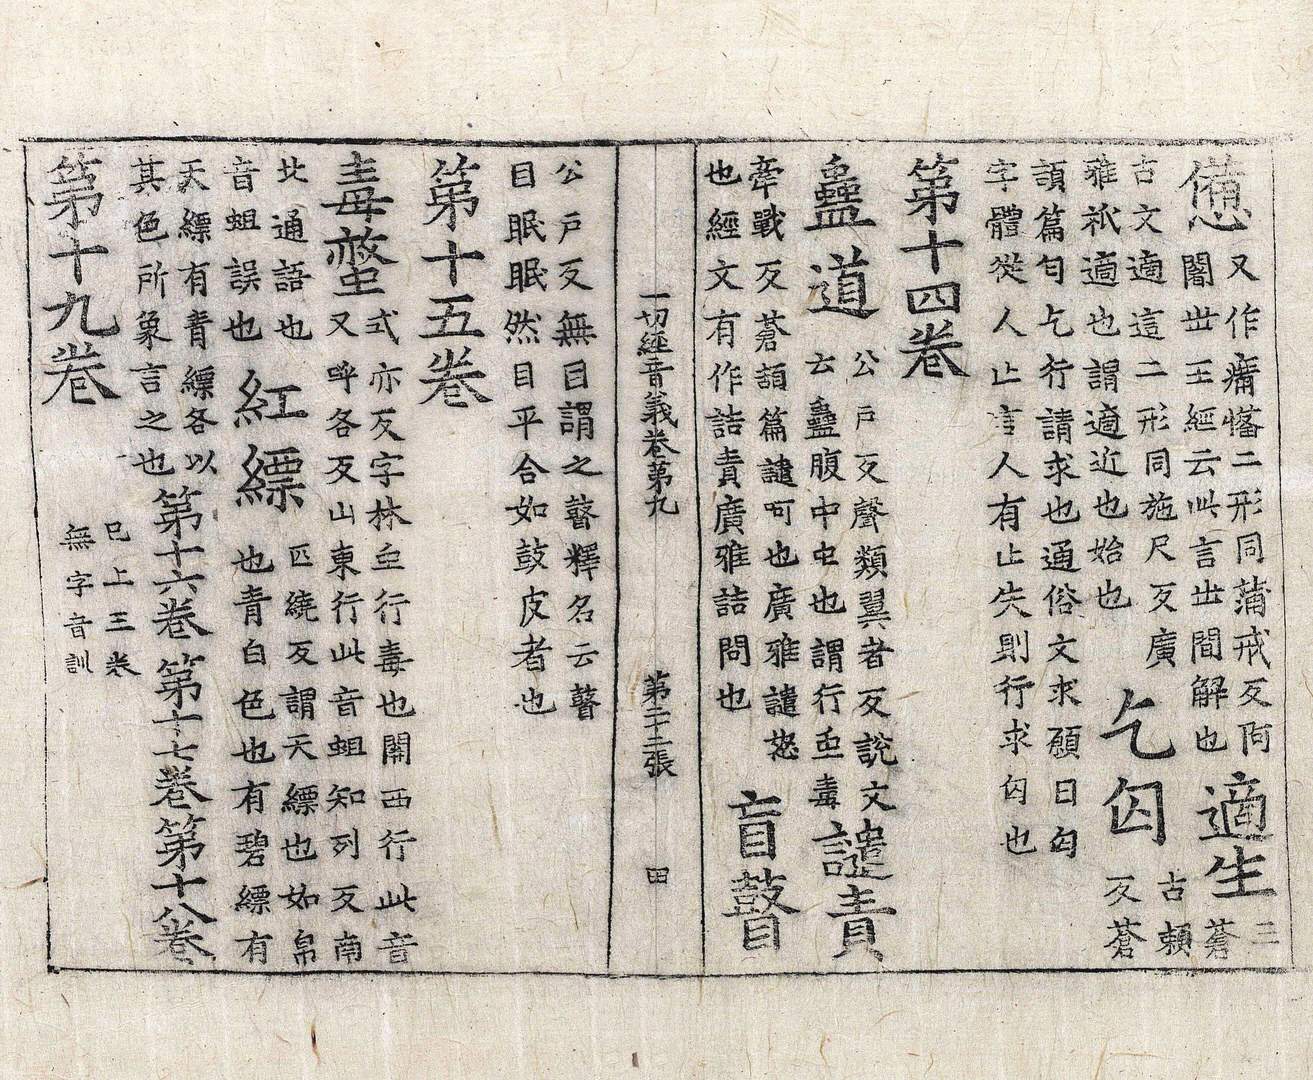 憊又作㾱𢣗二形同蒲戒反㡿
闇世王經云此言世間解也適生三蒼
古文適這二形同施尺反廣
雅祇適也謂適近也始也乞匃古賴反蒼
頡篇匂乞行請求也通俗文求願曰匃
字體從人止言人有止失則行求匃也
第十四卷
蠱道公戶反聲類翼者反說文
云蠱腹中虫也謂行虫毒譴責
牽戰反蒼頡篇譴呵也廣雅譴怒
也經文有作詰責廣雅詰問也盲瞽
一切經音義卷第九 第二十二張 田
公戶反無目謂之瞽釋名云瞽
目眠眠然目平合如鼓皮者也
第十五卷
毒螫式亦反字林虫行毒也關西行此音
又呼各反山東行此音蛆知列反南
北通語也
音蛆誤也紅縹匹繞反謂天縹也如帛
也青白色也有碧縹有
天縹有青縹各以
其色所象言之也第十六卷第十七卷第十八卷
已上三卷
無字音訓
第十九卷